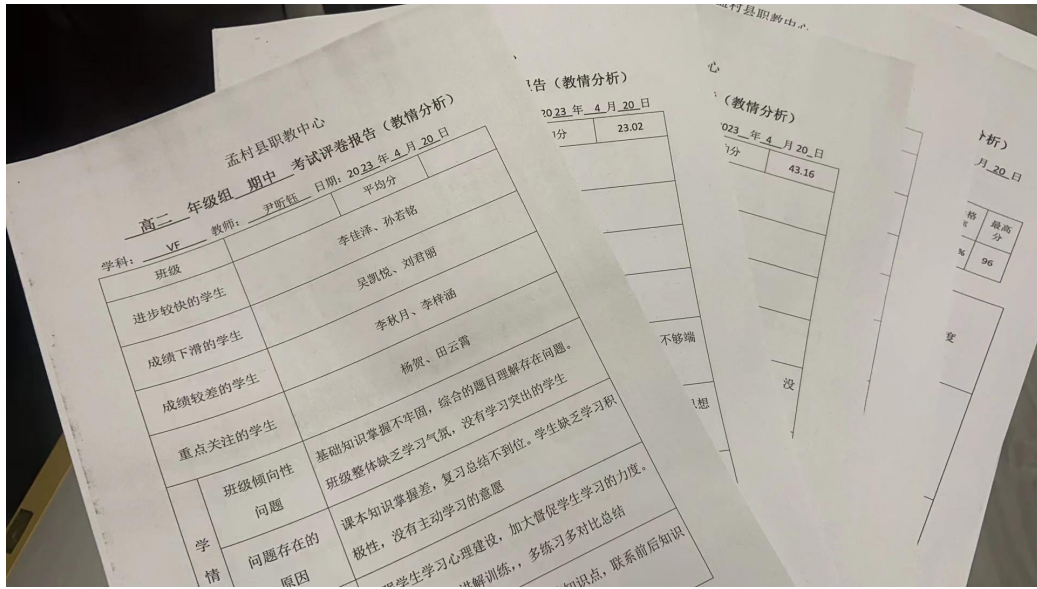 孟村县职教中心
高二 年级组 期中 考试评卷报告（教情分析）
学科： VF 教师： 尹昕钰 日期：2023年 4 月 20 日
班级 平均分
进步较快的学生 李佳泽、孙若铭
成绩下滑的学生 吴凯悦、刘君丽
成绩较差的学生 李秋月、李梓涵
重点关注的学生 杨贺、田云霄
学情
班级倾向性问题
基础知识掌握不牢固，综合的题目理解存在问题。
班级整体缺乏学习气氛，没有学习突出的学生
问题存在的原因
课本知识掌握差，复习总结不到位。学生缺乏学习积
极性，没有主动学习的意愿
学生学习心理建设，加大督促学生学习的力度。
讲解训练，，多练习多对比总结
知识点，联系前后知识
告（教情分析）
2023 年 4 月 20 日
分 23.02
不够端
思想
孟村县职教中心
心
（教情分析）
023 年 4 月 20 日
分 43.16
没
析）
月 20 日
格 最高分
% 96
度